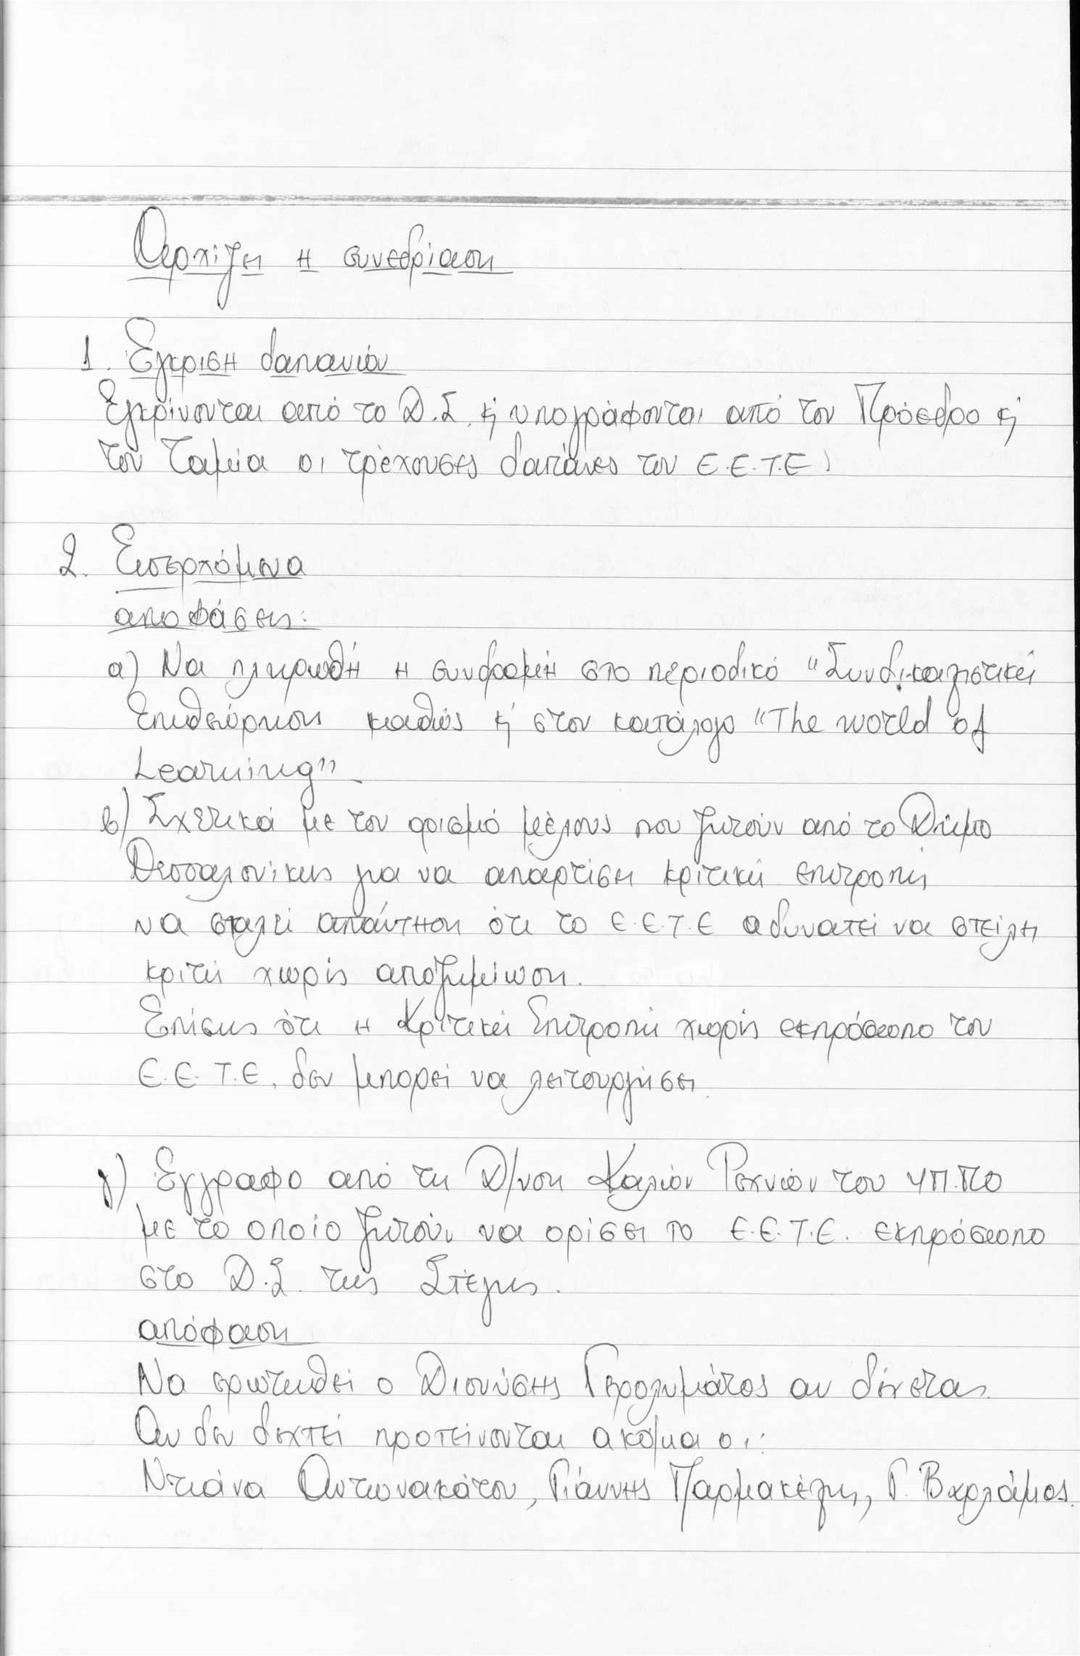 Αρχίζει η συνεδρίαση
1. Έγκριση δαπανών
Εγκρίνονται από το Δ.Σ. κ' υπογράφονται από τον Πρόεδρο κ'
τον Ταμία οι τρέχουσες δαπάνες του Ε.Ε.Τ.Ε
2. Εισερχόμενα
αποφάσεις:
α) Να πληρωθή η συνδρομή στο περιοδικό "Συνδικαλιστική
Επιθεώρηση καθώς κ' στον κατάλογο "The world of
Learning"
β) Σχετικά με τον ορισμό μέλους που ζητούν από το Δήμο
Θεσσαλονίκης για να απαρτίσει κριτική επιτροπή
να σταλεί απάντηση ότι το Ε.Ε.Τ.Ε αδυνατεί να στείλη
κριτή χωρίς αποζημίωση.
Επίσης ότι η Κριτική Επιτροπή χωρίς εκπρόσωπο του
Ε.Ε.Τ.Ε. δεν μπορεί να λειτουργήσει.
γ) Έγγραφο από τη Δ/νση Καλών Τεχνών του ΥΠ.ΠΟ
με το οποίο ζητούν να ορίσει το Ε.Ε.Τ.Ε. εκπρόσωπο
στο Δ.Σ. της Στέγης.
απόφαση
Να ερωτηθεί ο Διονύσης Γερολυμάτος αν δέχεται.
Αν δεν δεχτεί προτείνονται ακόμα οι:
Ντιάνα Αντωνακάτου, Γιάννης Παρμακέλης, Γ. Βαρλάμος.